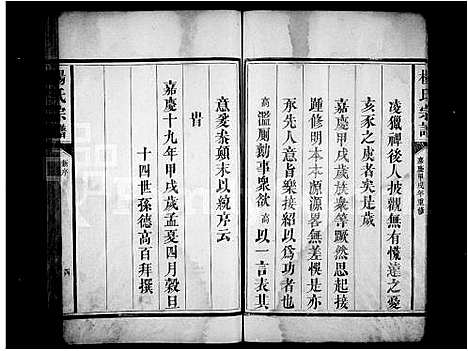 楊氏宗譜
嘉慶甲戌年重修
凌獵裨後人披觀無有慌遠之憂
亥豕之虞者矣是歲
嘉慶甲戌歲族衆等慰然思起接
踵修明本本源源畧無差悞是亦
承先人意旨樂接紹以爲功者也
高濫厠勷事衆欲高以一言表其
意爰恭顛末以統序云
旹
嘉慶十九年甲戌歲孟夏四月穀旦
十四世孫德高百拜撰
楊氏宗譜
新序
四